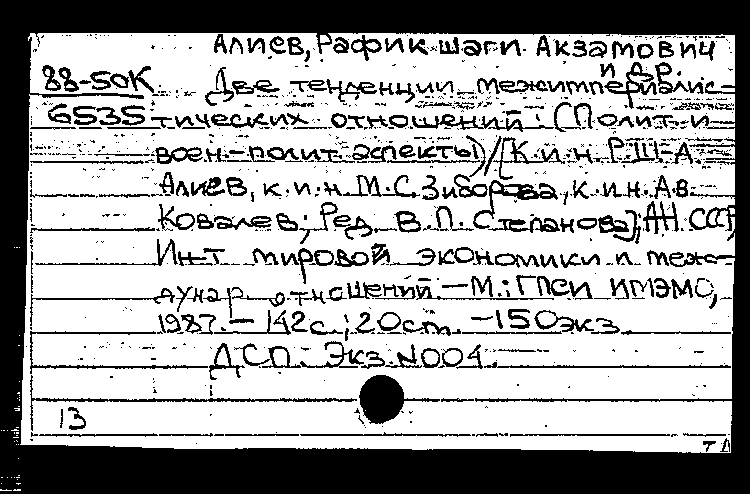 Алиев, Рафик шаги Акзамович
и др.
88-50К Две тенденции межимпериалис-
6535 тических отношений: (Полит. и
воен.-полит. аспекты)/[К.и.н. Р.Ш-А.
Алиев, к.и.н. М.С. Зиборова, к.и.н. А.В.
Ковалев; Ред. В.П. Степанова]; АН СССР,
Ин-т мировой экономики и меж-
дунар. отношений. — М.: ГПСИ ИМЭМО,
1987. — 142с.; 20см. — 150экз.
ДСП. Экз. N004.
13